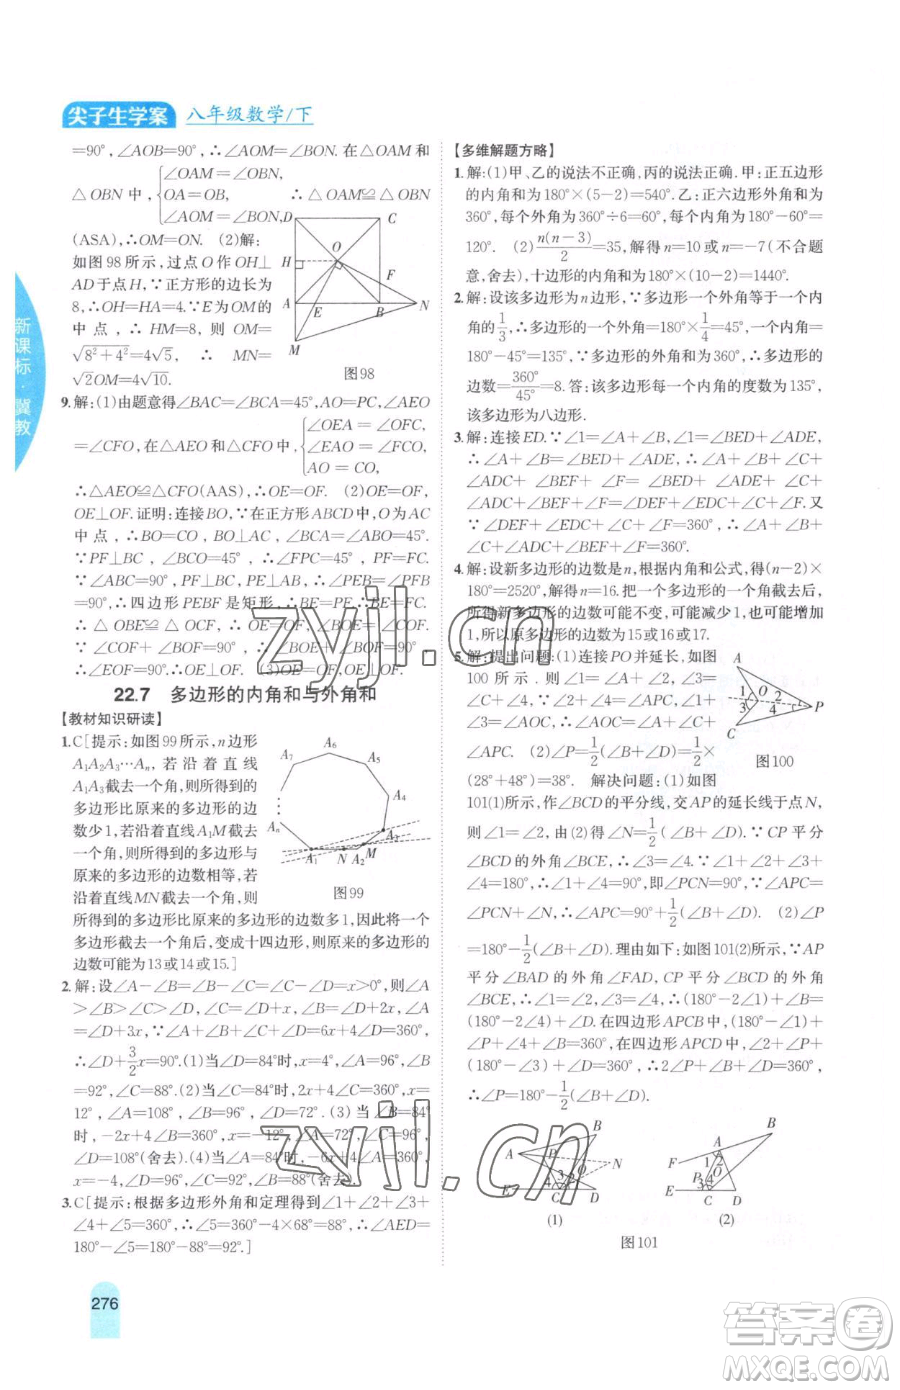 尖子生学案 八年级数学/下
新课标·冀教
=90°,∠AOB=90°,∴∠AOM=∠BON.在△OAM和
△OBN 中,{∠OAM=∠OBN, OA=OB, ∠AOM=∠BON, ∴△OAM≌△OBN
(ASA),∴OM=ON. (2)解:
如图98所示,过点O作OH⊥
AD于点H,∵正方形的边长为
8,∴OH=HA=4.∵E为OM的
中点,∴HM=8,则OM=
√(8²+4²)=4√5, ∴ MN=
√2OM=4√10.
D C H O F A E B N M
图98
9.解:(1)由题意得∠BAC=∠BCA=45°,AO=PC,∠AEO
=∠CFO,在△AEO和△CFO中,{∠OEA=∠OFC, ∠EAO=∠FCO, AO=CO,
∴△AEO≌△CFO(AAS),∴OE=OF. (2)OE=OF,
OE⊥OF.证明:连接BO,∵在正方形ABCD中,O为AC
中点,∴BO=CO,BO⊥AC,∠BCA=∠ABO=45°.
∵PF⊥BC,∠BCO=45°,∴∠FPC=45°,∴PF=FC.
∵∠ABC=90°,∴四边形PEBF是矩形,∴BE=PF,
∴△OBE≌△OCF(SAS),∴OE=OF,∠BOE=∠COF.
∵∠COF+∠BOF=90°,∴∠BOE+∠BOF=90°,
∴∠EOF=90°,∴OE⊥OF. (3)OE=OF,OE⊥OF.
22.7 多边形的内角和与外角和
【教材知识研读】
1.C[提示:如图99所示,n边形
A₁A₂A₃…Aₙ,若沿着直线
A₁A₃截去一个角,所得到的
多边形比原来的多边形的边
数少1,若沿着直线A₁M截去
一个角,所得到的多边形与
原来的多边形的边数相等,若
沿着直线MN截去一个角,则
所得到的多边形比原来的多边形的边数多1,因此将一个
多边形截去一个角后,变成十四边形,则原来的多边形的
边数可能为13或14或15.]
A₇ A₆ A₅ A₄ A₃ A₂ A₁ Aₙ N M
图99
2.解:设∠A-∠B=∠B-∠C=∠C-∠D=x>0°,则∠A
>∠B>∠C>∠D,∠C=∠D+x,∠B=∠D+2x,∠A
=∠D+3x,∵∠A+∠B+∠C+∠D=6x+4∠D=360°,
∴∠D+3/2x=90°.(1)当∠D=84°时,x=4°,∠A=96°,∠B
=92°,∠C=88°.(2)当∠C=84°时,2x+4∠C=360°,x=
12°,∠A=108°,∠B=96°,∠D=72°. (3)当∠B=84°
时,-2x+4∠B=360°,x=-12°,∠A=72°,∠C=96°,
∠D=108°(舍去).(4)当∠A=84°时,-6x+4∠A=360°,
x=-4°,∠D=96°,∠C=92°,∠B=88°(舍去).
3.C[提示:根据多边形外角和定理得到∠1+∠2+∠3+
∠4+∠5=360°,∴∠5=360°-4×68°=88°,∴∠AED=
180°-∠5=180°-88°=92°.]
【多维解题方略】
1.解:(1)甲、乙的说法不正确,丙的说法正确.甲:正五边形
的内角和为180°×(5-2)=540°.乙:正六边形外角和为
360°,每个外角为360°÷6=60°,每个内角为180°-60°=
120°. (2)n(n-3)/2=35,解得n=10或n=-7(不合题
意,舍去),十边形的内角和为180°×(10-2)=1440°.
2.解:设该多边形为n边形,∵多边形一个外角等于一个内
角的1/3,∴多边形的一个外角=180°×1/4=45°,一个内角=
180°-45°=135°,∵多边形的外角和为360°,∴多边形的
边数=360°/45°=8.答:该多边形每个内角的度数为135°,
该多边形为八边形.
3.解:连接ED.∵∠1=∠A+∠B,∠1=∠BED+∠ADE,
∴∠A+∠B=∠BED+∠ADE,∴∠A+∠B+∠C+
∠ADC+∠BEF+∠F=∠BED+∠ADE+∠C+
∠ADC+∠BEF+∠F=∠DEF+∠EDC+∠C+∠F.又
∵∠DEF+∠EDC+∠C+∠F=360°,∴∠A+∠B+
∠C+∠ADC+∠BEF+∠F=360°.
4.解:设新多边形的边数是n,根据内角和公式,得(n-2)×
180°=2520°,解得n=16.把一个多边形的一个角截去后,
所得新多边形的边数可能不变,可能减少1,也可能增加
1,所以原多边形的边数为15或16或17.
5.解:提出问题:(1)连接PO并延长,如图
100所示.则∠1=∠A+∠2,∠3=
∠C+∠4,∴∠1+∠3=∠A+∠2+∠C+
∠4,∴∠AOC=∠1+∠3=∠A+∠C+
∠APC. (2)∠P=1/2(∠B+∠D)=1/2×
(28°+48°)=38°. 解决问题:(1)如图
A O P C 1 2 3 4
图100
101(1)所示,作∠BCD的平分线,交AP的延长线于点N,
则∠1=∠2,由(2)得∠N=1/2(∠B+∠D).∵CP平分
∠BCD的外角∠BCE,∴∠3=∠4.∵∠1+∠2+∠3+
∠4=180°,∴∠1+∠4=90°,即∠PCN=90°,∴∠APC=
∠PCN+∠N,∴∠APC=90°+1/2(∠B+∠D). (2)∠P
=180°-1/2(∠B+∠D).理由如下:如图101(2)所示,∵AP
平分∠BAD的外角∠FAD,CP平分∠BCD的外角
∠BCE,∴∠1=∠2,∠3=∠4,∴(180°-2∠1)+∠B=
(180°-2∠4)+∠D.在四边形APCB中,(180°-∠1)+
∠P+∠4+∠B=360°,在四边形APCD中,∠2+∠P+
(180°-∠3)+∠D=360°,∴2∠P+∠B+∠D=360°,
∴∠P=180°-1/2(∠B+∠D).
A B P O N E C D 1 2 3 4
(1)
F A B O P E C D 1 2 3 4
(2)
图101
276
zyjl.cn
zyjl.cn
答案圈
MXQE.COM